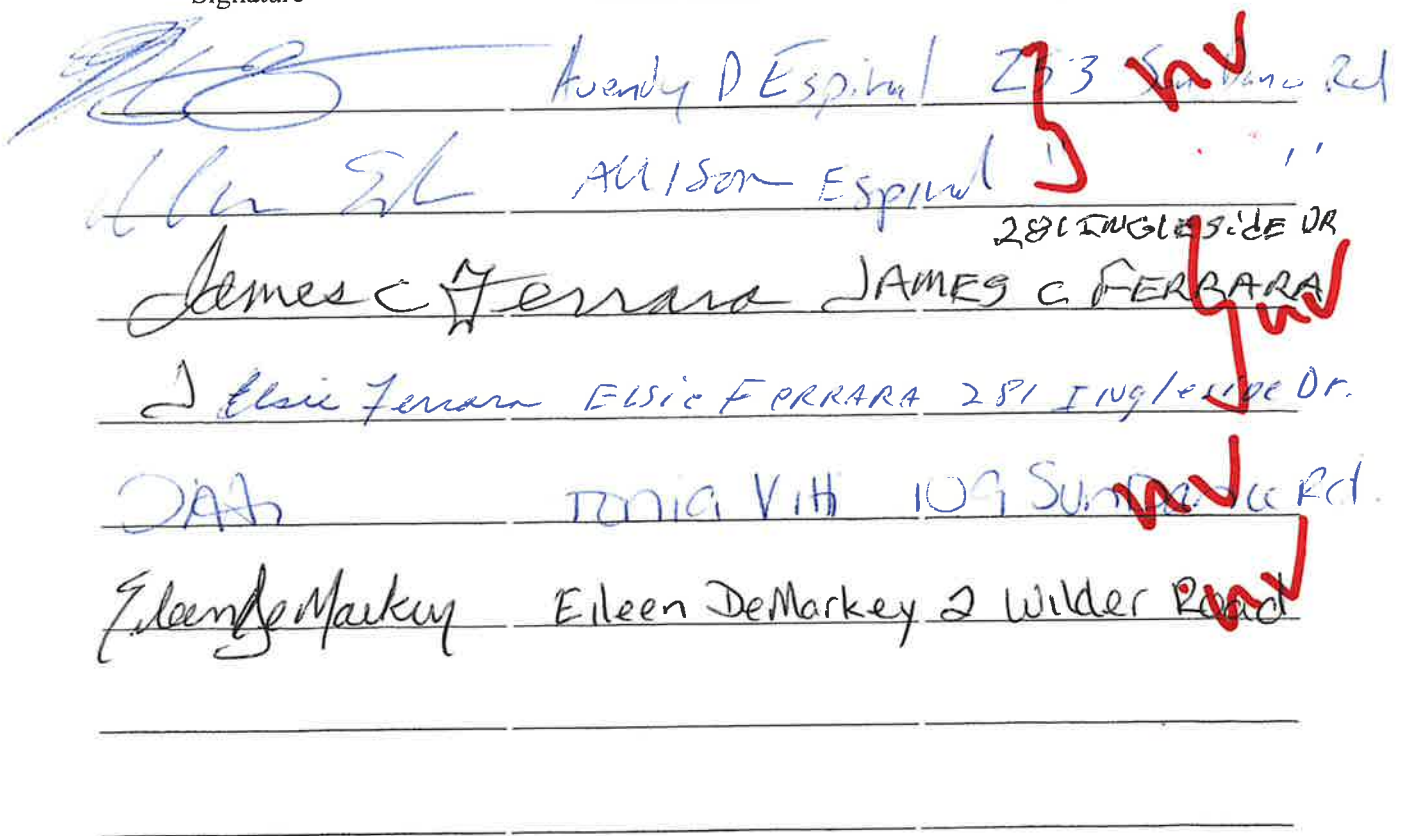 Signature
Avendy D Espinal 253 Sundance Rd
Allison Espinal " "
281 INGLESidE DR
James C Ferrara JAMES C FERRARA
Elsie Ferrara Elsie FERRARA 281 Ingleside Dr.
Tonia Vitti 109 Sundance Rd.
Eileen DeMarkey Eileen DeMarkey 2 Wilder Road